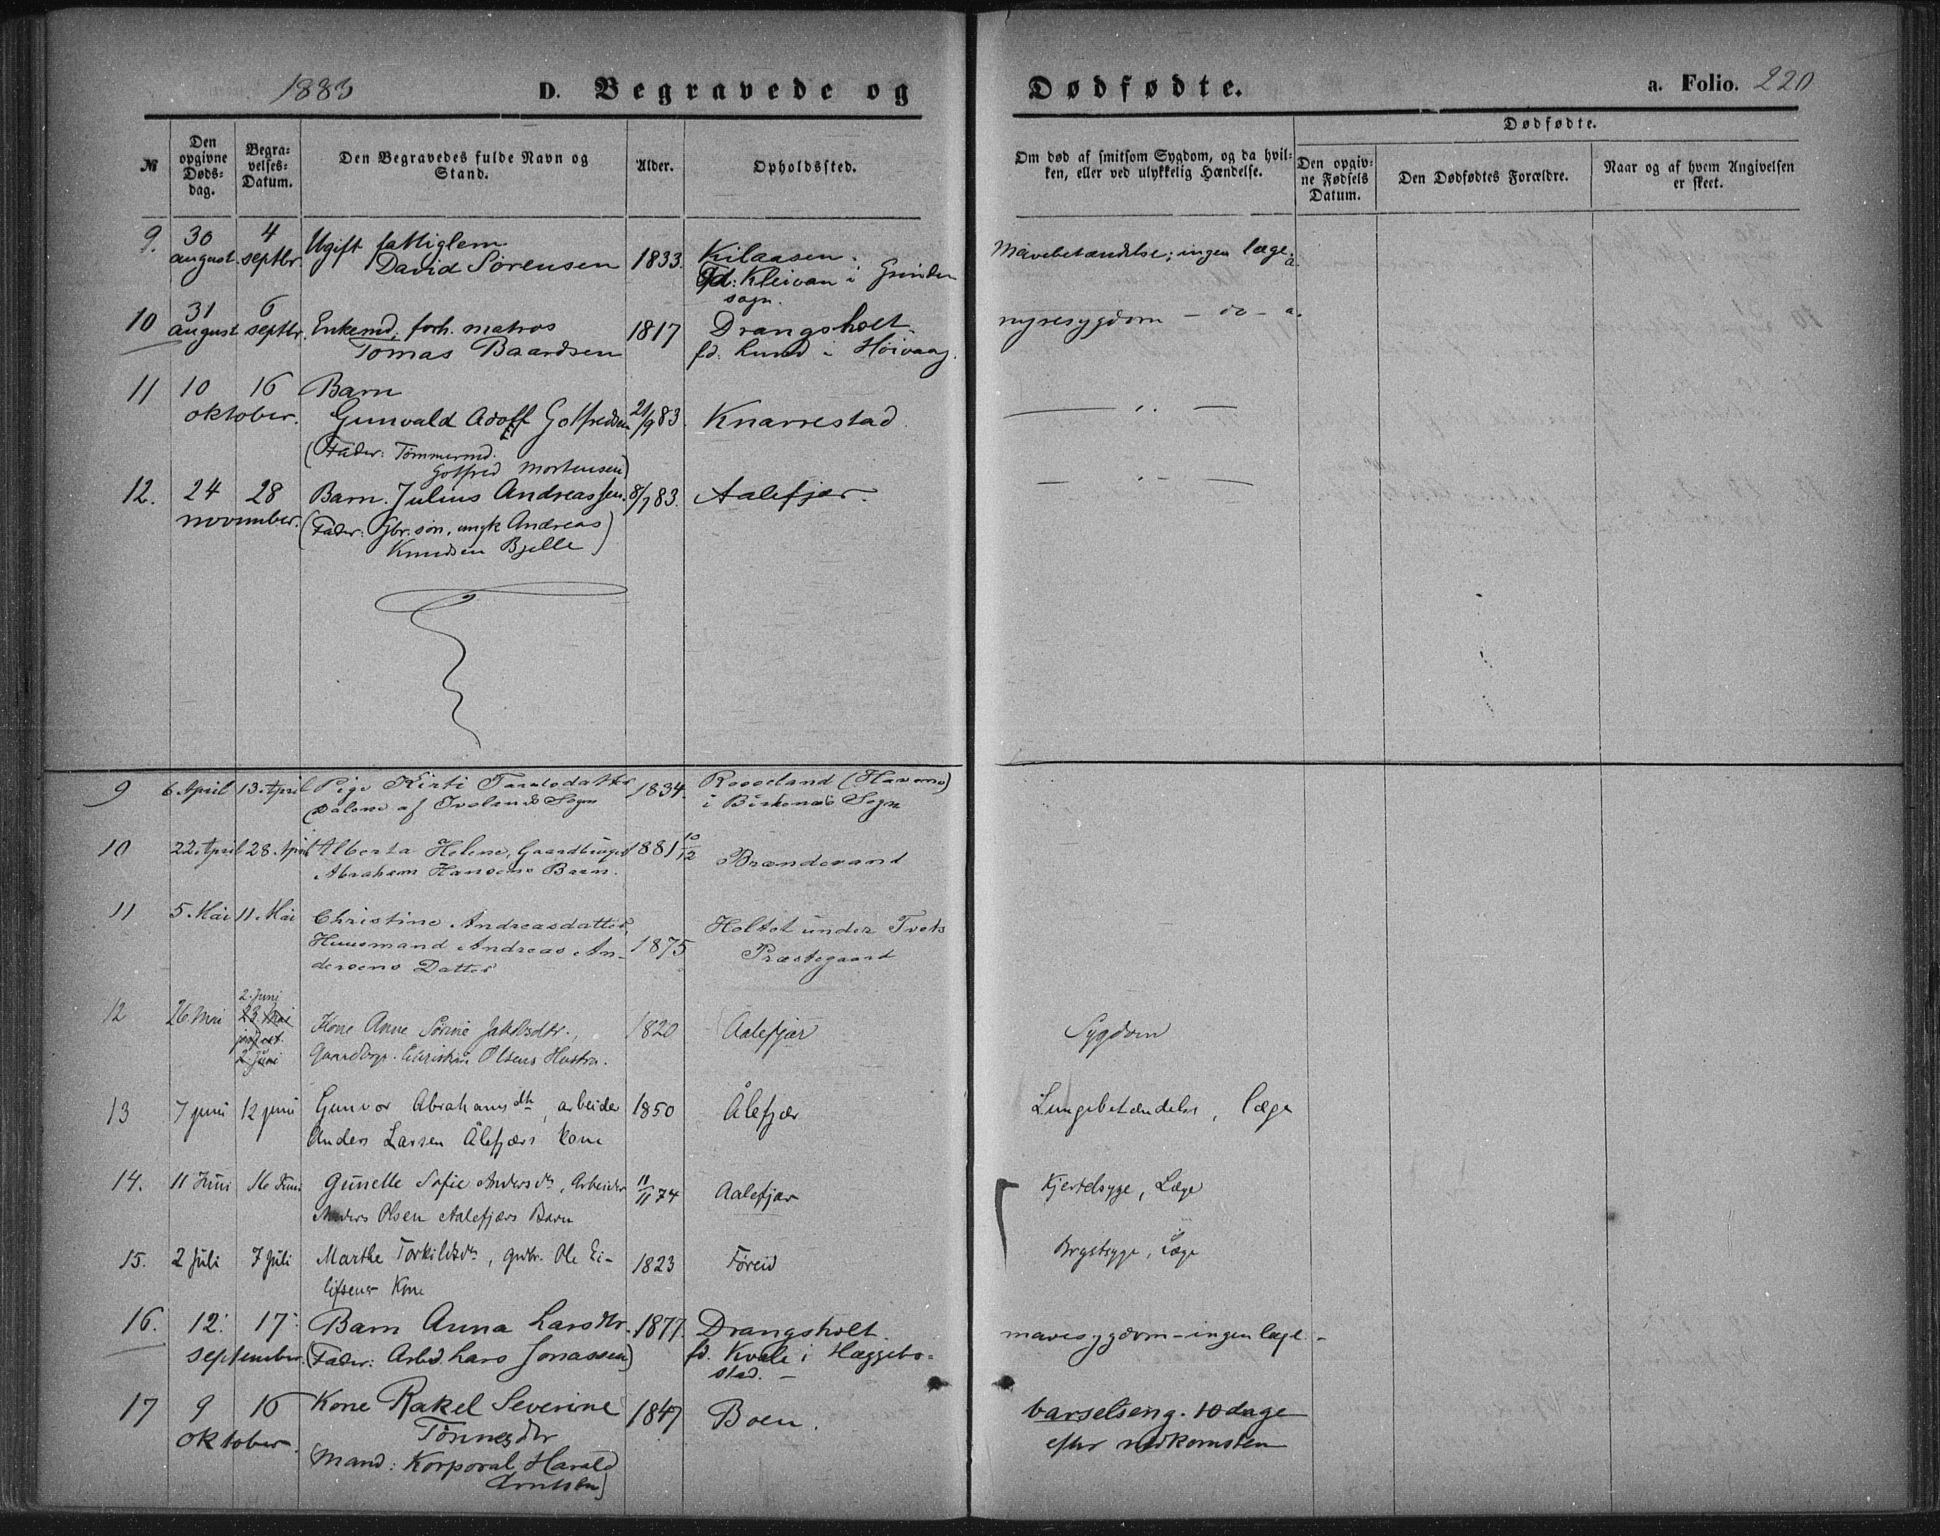 1883
D. Begravede og Dødfødte.
a. Folio. 220
№
Den opgivne Døds-dag.
Begra-velses-Datum.
Den Begravedes fulde Navn og Stand.
Alder.
Opholdssted.
Om død af smitsom Sygdom, og da hvil-ken, eller ved ulykkelig Hændelse.
Dødfødte.
Den opgiv-ne Fødsels Datum.
Den Dødfødtes Forældre.
Naar og af hvem Angivelsen er skeet.
9. 30 august 4 septbr. Ugift fattiglem
David Sörensen 1833. Kilaasen.
fd: Kleivan i
sogn.
Mavebetændelse; ingen læge. a.
10 31 august 6 septbr. Enkemd. forh. matros
Tomas Baardsen 1817 Drangsholt.
fd. Lund i Höivaag.
nyresygdom - do - a.
11 10 16 oktober. Barn
Gunvald Adolf Gotfredsen 21/9 83. Knarrestad.
(Fader: Tömmermd.
Gotfred Mortensen)
12. 24 28 november. Barn. Julius Andreassen. 8/7 83. Aalefjær.
(Fader: Gbr. sön, ungk Andreas
Knudsen Bjelle)
9 6 April 13 April Pige Kirti
Dalene af Ivelands Sogn 1834. Rosseland
i Birkenes Sogn
10 22. April 28. April Alberta Helene, Gaardbruger
Abraham Hansens Barn. 1881 10/12 Brændevand
11 5. Mai 11. Mai Christine Andreasdatter,
Huusmand Andreas An-
dersens Datter 1875 Holtet under Tvets
Præstegaard
12 26 Mai 2. Juni
23 Mai
2. Juni
Kone Anne Sörine Jakobsdtr.,
Gaardbrgr. Christian Olsens Hustru. 1820 Aalefjær
Sygdom
13 7 juni 12 juni Gunvor Abrahamsdtr, arbeider
Anders Larsen Ålefjærs kone 1850 Ålefjær
Lungebetændelse, læge
14. 11 Juni 16 Juni Gunelle Sofie Andersdtr, Arbeider
Anders Olsen Aalefjærs Barn 11/11 74 Aalefjær
Kjertelsyge, Læge
15. 2 Juli 7 Juli Marthe Torkildsdtr, gmbr. Ole Ei-
lifsens Kone 1823 Føreid
Brystsyge, Læge
16. 12. 17. september. Barn Anna Larsdtr. 1877. Drangsholt.
(Fader: Arbd. Lars Jonassen) fd. Kvale i Hæggebo-
stad.
mavesygdom - ingen læge. -
17 9 16 oktober. Kone Rakel Severine
Tönnesdtr 1847 Boen.
(Mand: Korporal Harald
Arntsen)
barselseng. 10 dage
efter nedkomsten